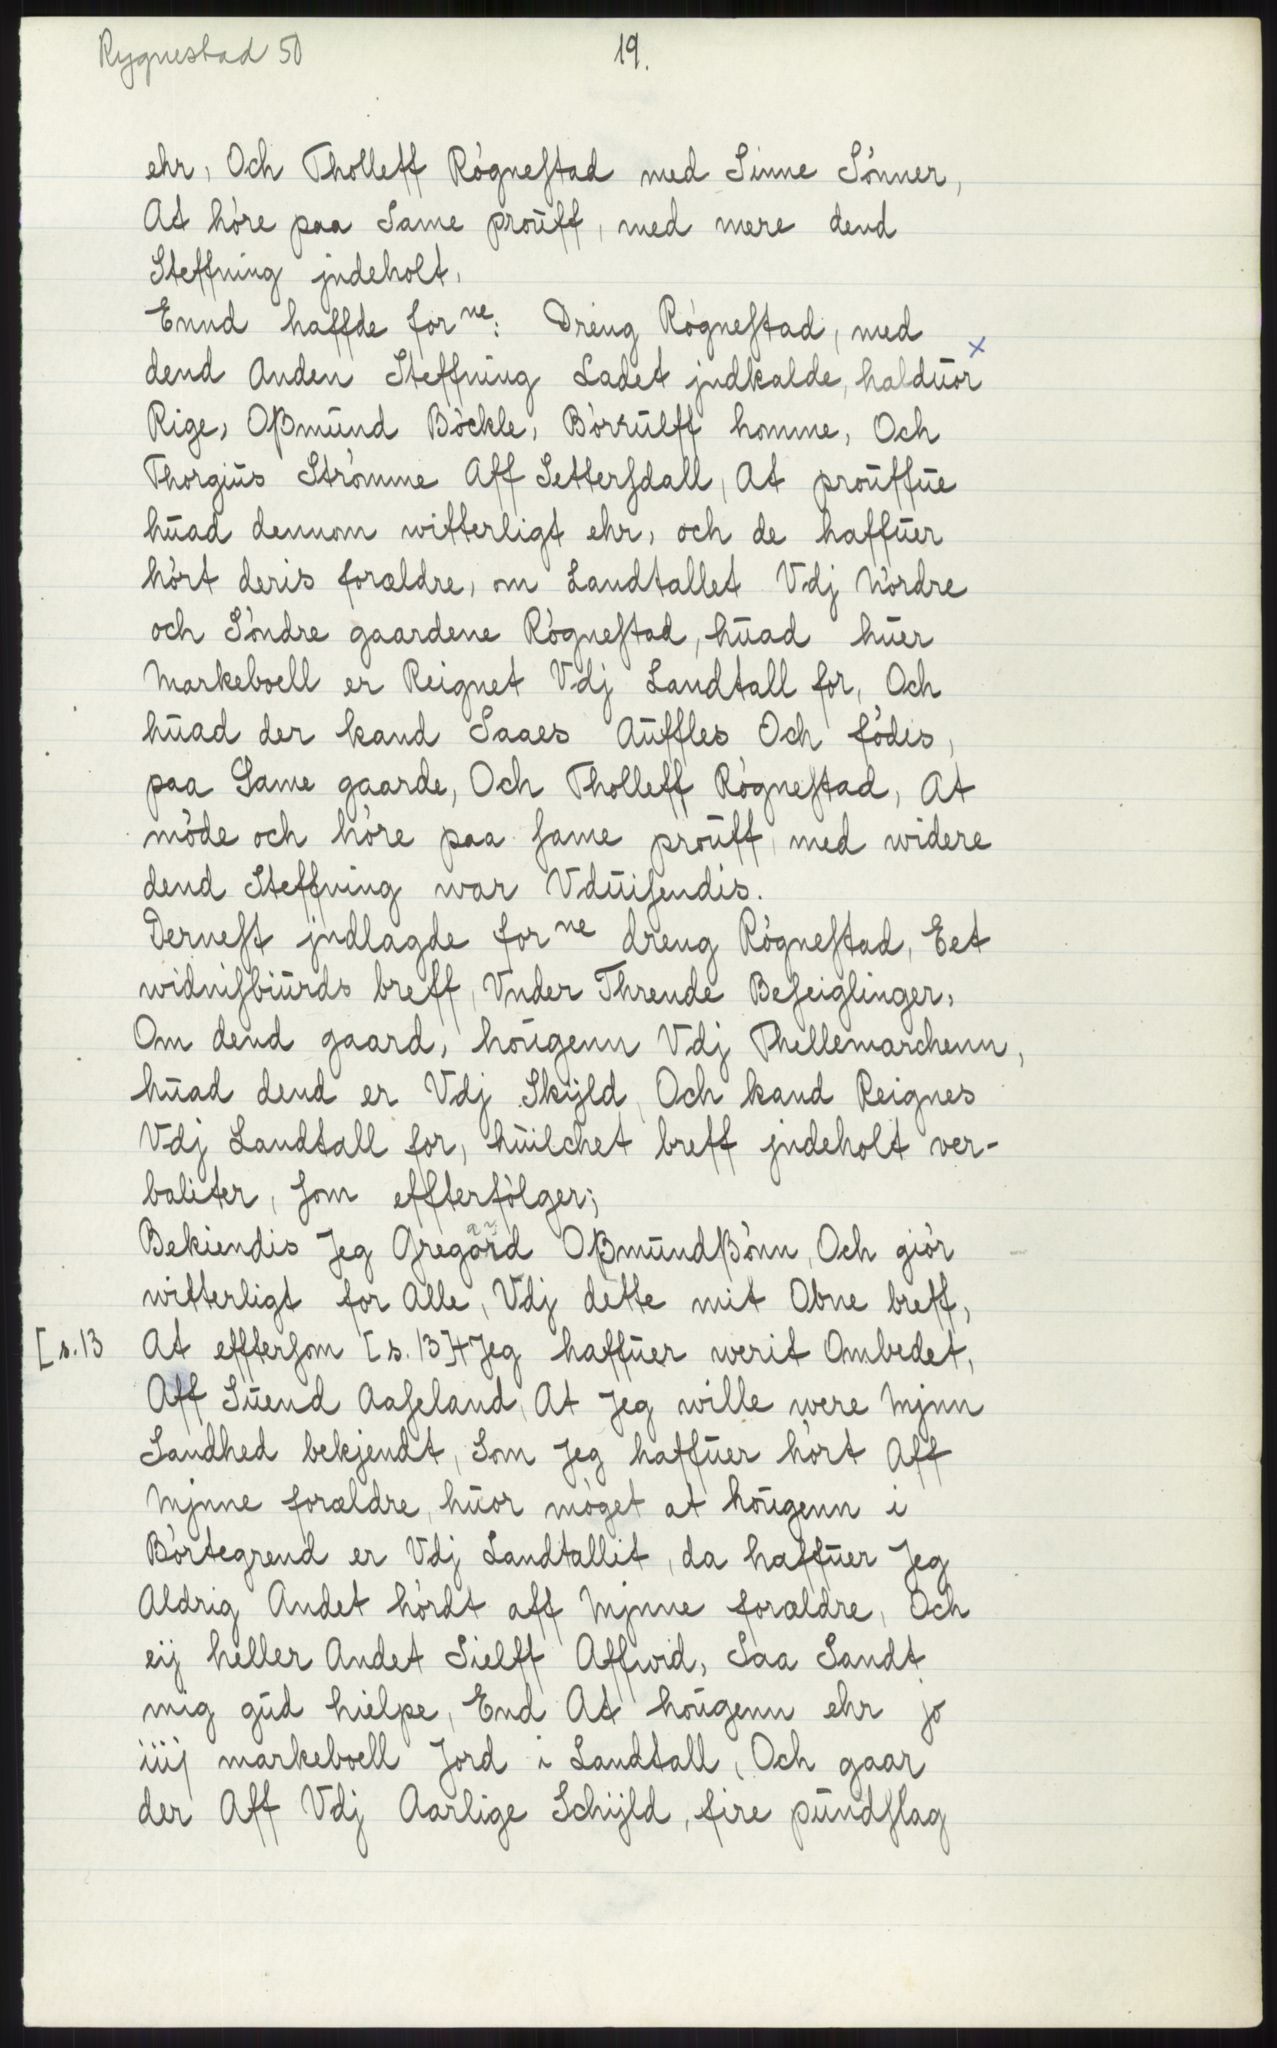 Rygnestad 50
19.
ehr, Och Tholleff Rògneſtad med Sinne Sònner,
At hòre paa Same proūff, med mere dend
Steffning jndeholt.
Ennd haffde for ne: Dreng Rògneſtad, med
dend Anden Steffning Ladet jndkalde, haldūor x
Rige, Oßmūnd Bòckle, Bòrrūlff homme, Och
Thorgiūs Stròmme Aff Setterſdall, At proūffūe
hūad dennom witterligt ehr, och de haffūer
hòrt deris forældre, om Landtallet Vdj Nòrdre
och Sòndre gaardene Rògneſtad, hūad hūer
Markeboell er Reignet Vdj Landtall for, Och
hūad der kand Saaes Aūffles Och fòdes,
paa Same gaarde, Och Tholleff Rògneſtad, At
mòde och hòre paa ſame proūff, med widere
dend Steffning war Vdūiſendis.
Derneſt jndlagde for ne dreng Rògneſtad, Eet
widniſbiūrds breff, Vnder Thrende Beſeiglinger,
Om dend gaard, hoūgenn Vdj Thellemarchenn,
hūad dend er Vdj Skijld, Och kand Reignes
Vdj Landtall for, hūilchet breff jndeholt ver-
baliter, ſom effterfòlger;
Bekiendis Jeg Gregard Oßmūndßònn, Och giòr
witterligt for Alle, Vdj dette mit Obne breff,
[s.13 At effterſom [s. 13] Jeg haffūer werit Ombedet,
Aff Sūend Aaſeland, At Jeg wille were Mjnn
Sandhed bekjendt, Som Jeg haffūer hòrt Aff
Mjnne forældre, hūor mòget at hoūgenn i
Bòrtegrend er Vdj Landtallit, da haffūer Jeg
Aldrig Andet hòrdt aff Mjnne forældre, Och
eij heller Andet Sielff Affwid, Saa Sandt
mig gūd hielpe, End At hoūgenn ehr jo
iiij markeboell Jord i Landtall, Och gaar
der Aff Vdj Aarlige Schijld, fire pūndſlag